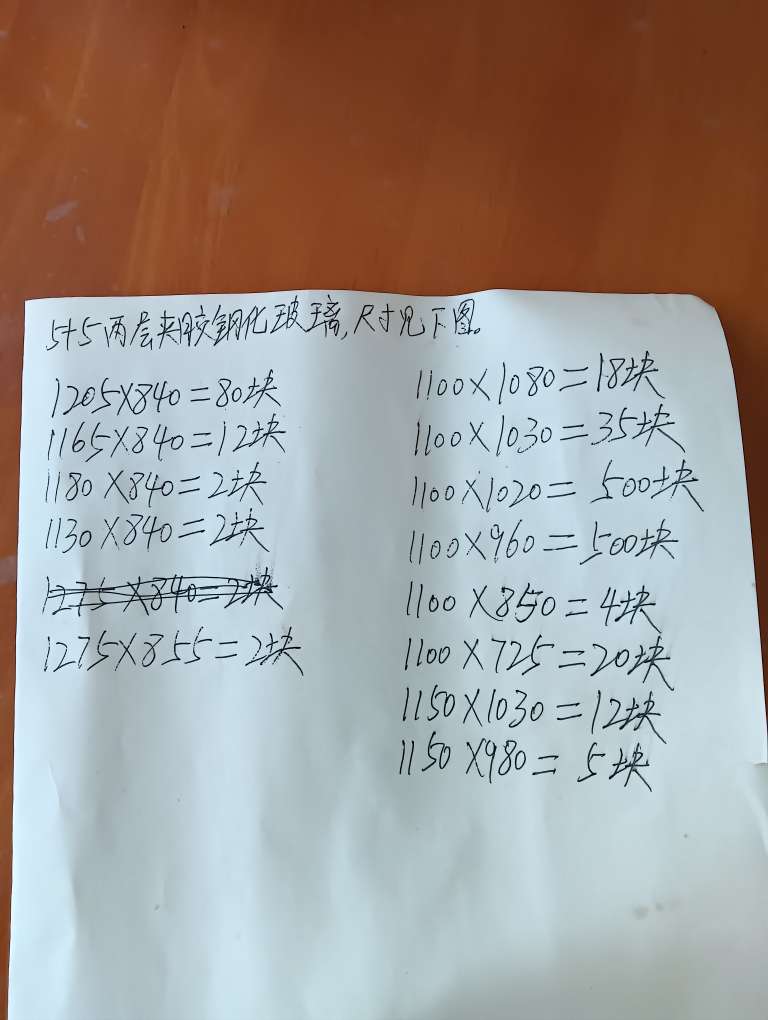 5+5两层夹胶钢化玻璃,尺寸见下图。
1205×840=80块
1165×840=12块
1180×840=2块
1130×840=2块
1275×840=2块
1275×855=2块
1100×1080=18块
1100×1030=35块
1100×1020=500块
1100×960=500块
1100×850=4块
1100×725=20块
1150×1030=12块
1150×980=5块